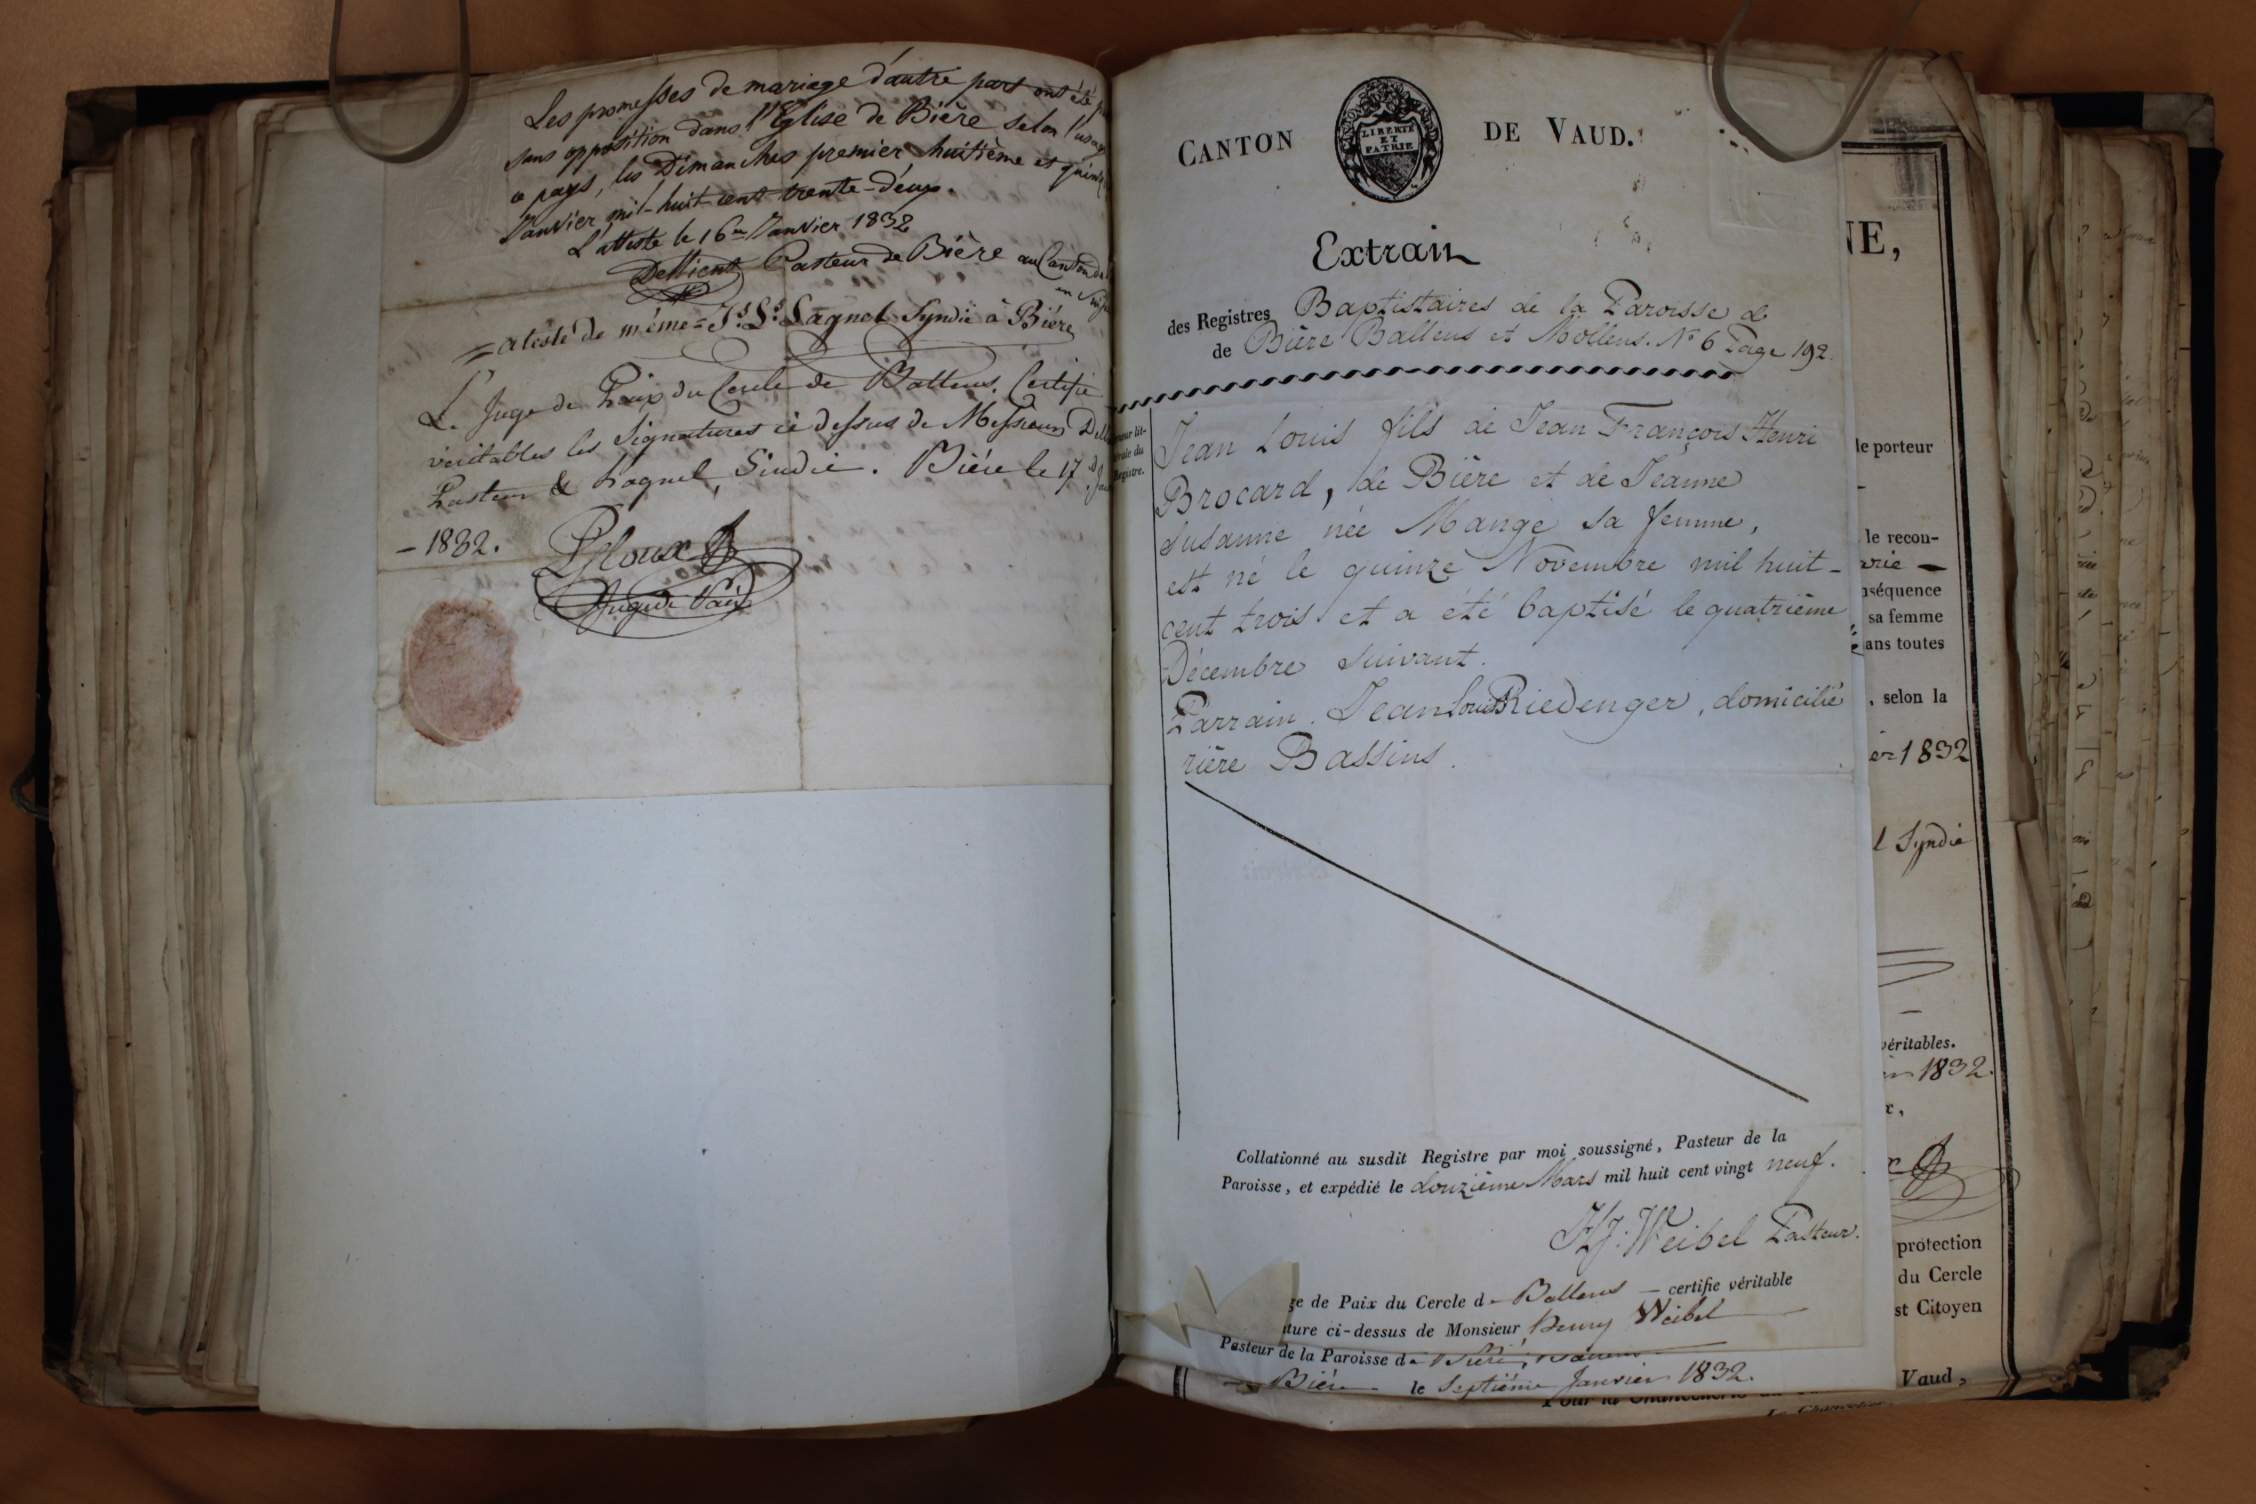 Les promesses de mariage d'autre part ont été
sans opposition dans l'Eglise de Bière selon l'usage
ce pays, les Dimanches premier huitième et quinz
Janvier mil-huit cent trente-deux.
L'atteste le 16me Janvier 1832
Dellient Pasteur de Bière au Canton de
en
= atesté de même = Js. Ls. Lagnel Syndic à Bière
L. Juge de Paix du Cercle de Ballens, Certifie
véritables les Signatures ci dessus de Messieurs Dell
Pasteur & Lagnel, Sindic. Bière le 17
- 1832.
Juge de Paix
CANTON DE VAUD.
LIBERTÉ
ET
PATRIE
Extrait
des Registres Baptistaires de la Paroisse de
de Bière Ballens et Mollens. No 6 Page 192.
Jean Louis fils de Jean François Henri
Brocard, de Bière et de Jeanne
Susanne née Mange sa femme,
est né le quinze Novembre mil huit-
cent trois et a été baptisé le quatrième
Décembre suivant.
Parrain. Jean Louis Riedenger, domicilié
rière Bassins.
Collationné au susdit Registre par moi soussigné, Pasteur de la
Paroisse, et expédié le douzième Mars mil huit cent vingt neuf.
HJ: Weibel Pasteur.
ge de Paix du Cercle de Ballens — certifie véritable
ture ci-dessus de Monsieur Henry Weibel
Pasteur de la Paroisse de Bière,
Bière le Septième Janvier 1832.
NE,
le porteur
le recon-
arie —
nséquence
sa femme
ans toutes
, selon la
er 1832
l Syndic
véritables.
1832.
protection
du Cercle
st Citoyen
Vaud,